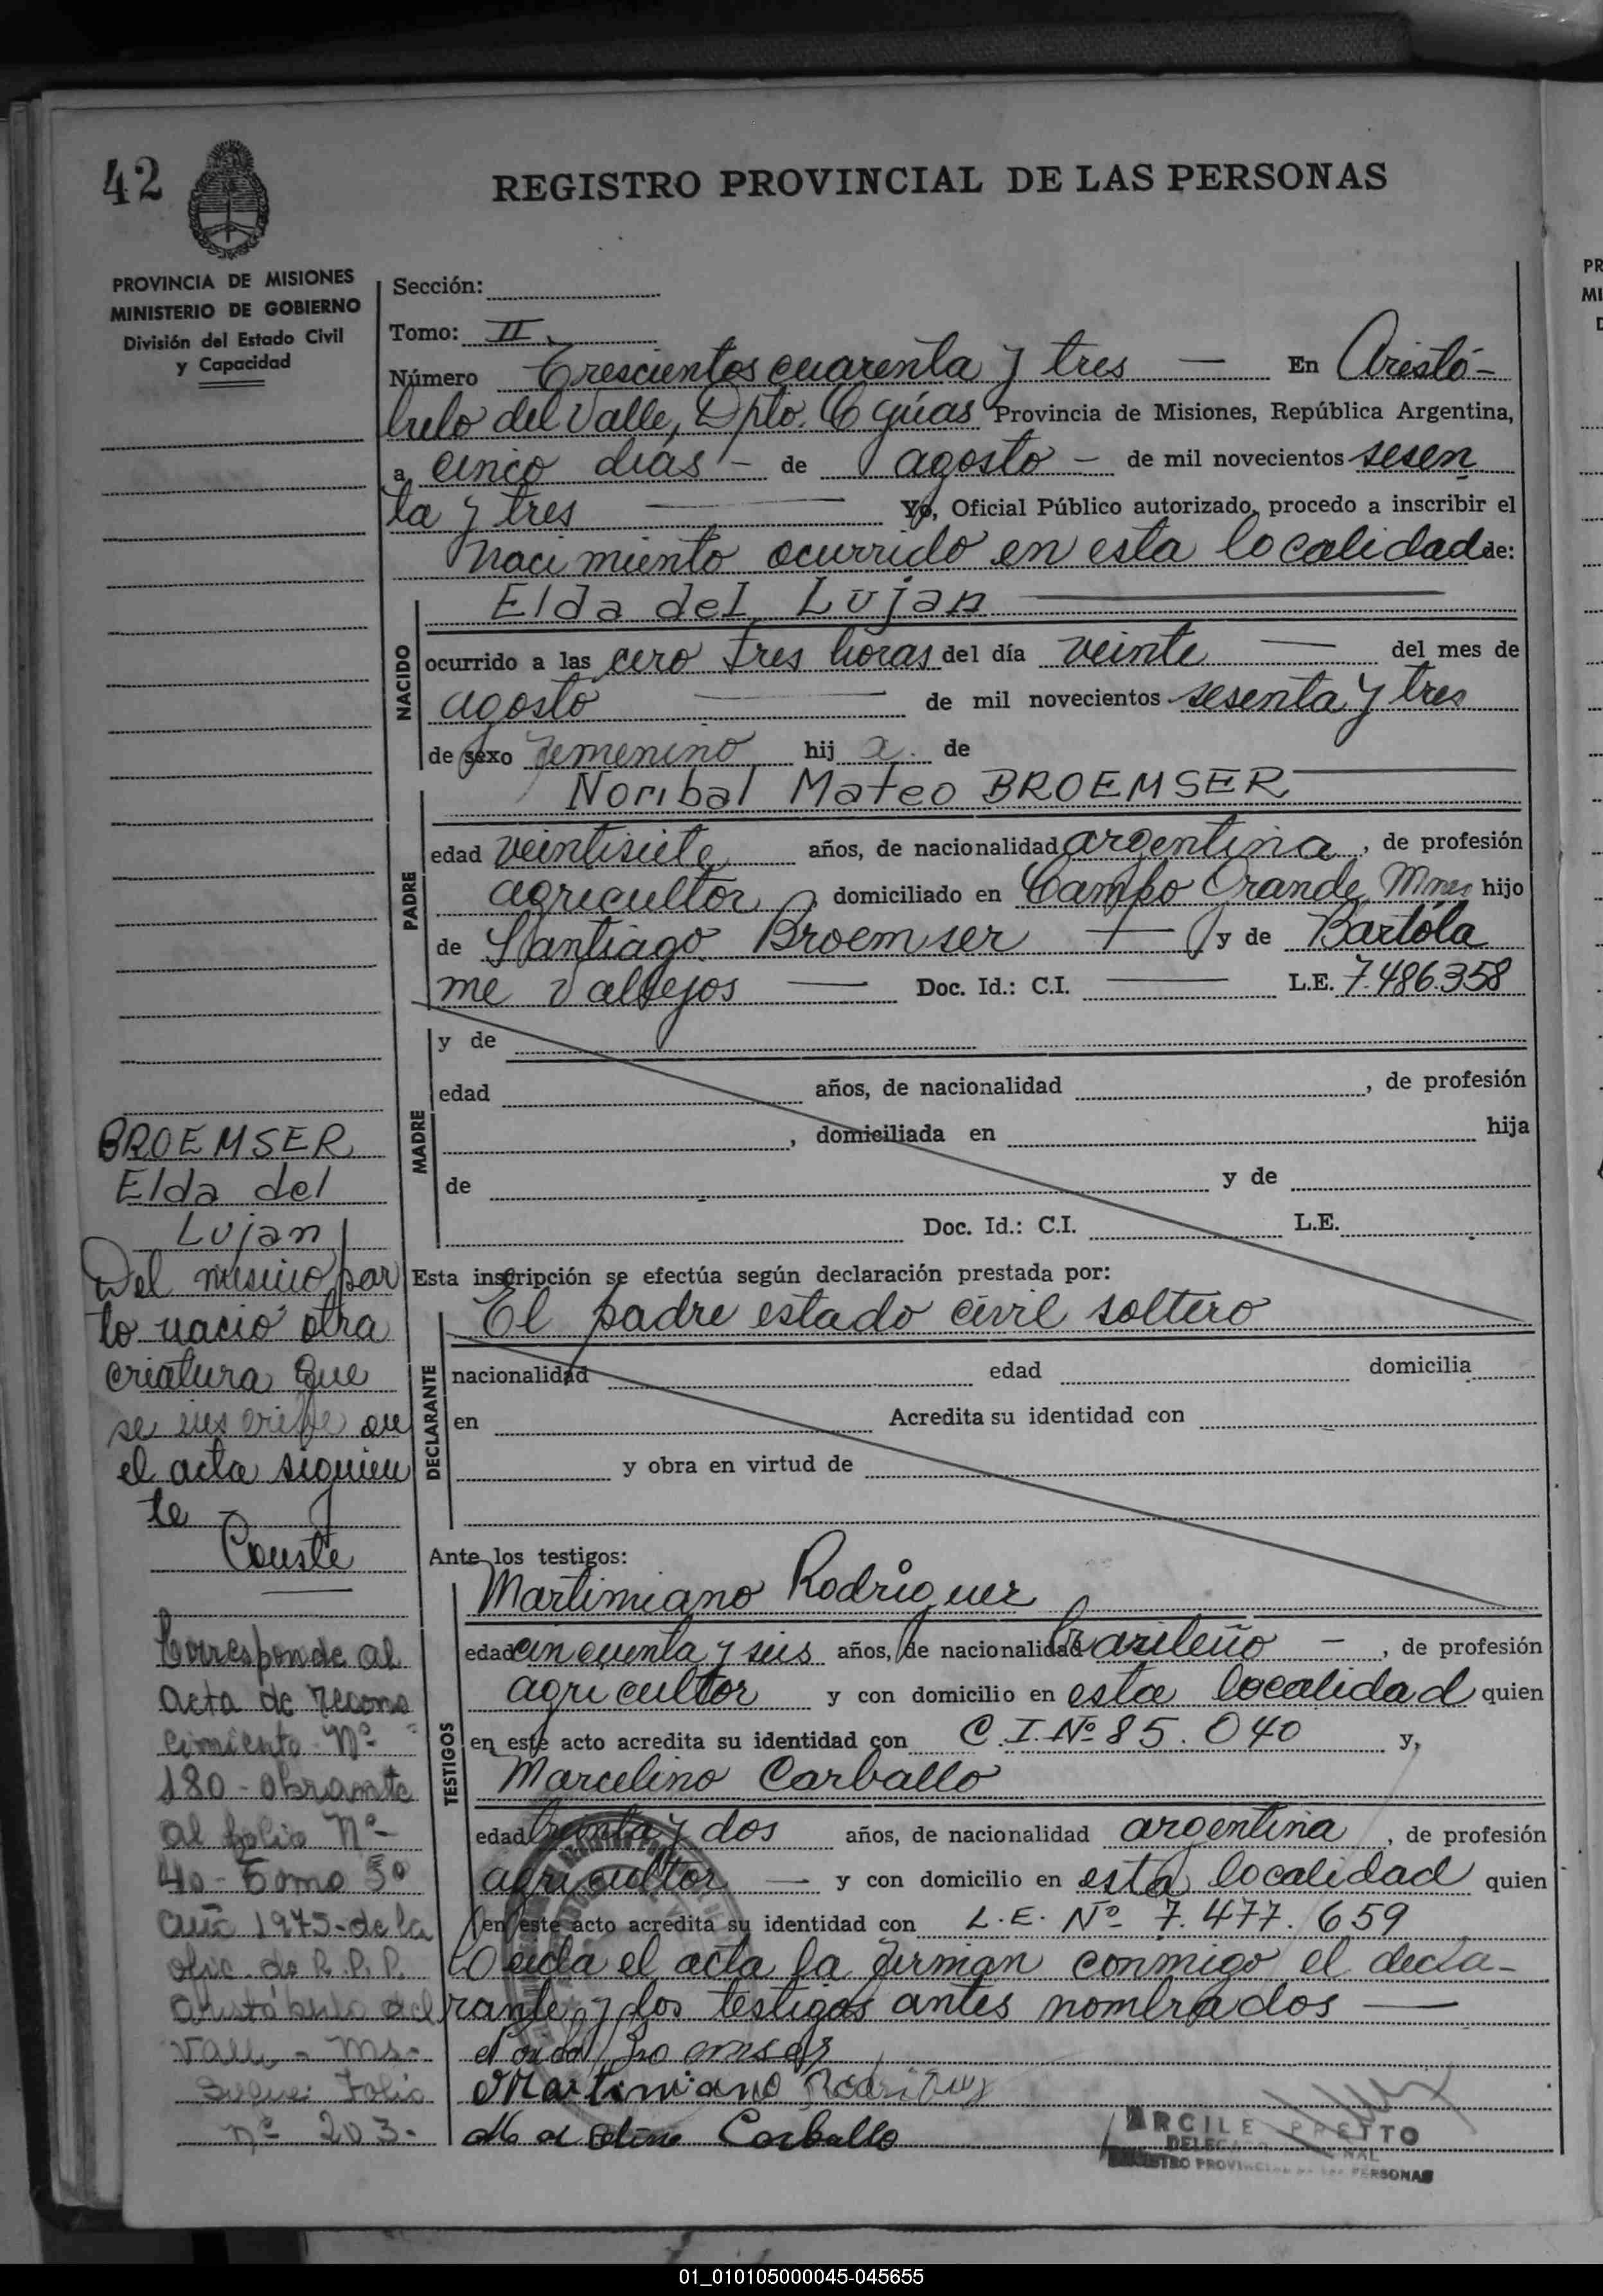 42
REGISTRO PROVINCIAL DE LAS PERSONAS
PROVINCIA DE MISIONES
MINISTERIO DE GOBIERNO
División del Estado Civil
y Capacidad
Sección:
Tomo: II
Número Trescientos cuarenta y tres — En Aristó-
bulo del Valle, Dpto. C güas Provincia de Misiones, República Argentina,
a cinco días - de agosto - de mil novecientos sesen
ta y tres — Yo, Oficial Público autorizado, procedo a inscribir el
nacimiento ocurrido en esta localidad de:
NACIDO
Elda del Lujan
ocurrido a las cero tres horas del día veinte — del mes de
agosto — de mil novecientos sesenta y tres
de sexo femenino hij a. de
PADRE
Noribal Mateo BROEMSER
edad veintisiete años, de nacionalidad argentina, de profesión
agricultor, domiciliado en Campo Grande, Mnes hijo
de Santiago Broemser — y de Bartóla
me Vallejos — Doc. Id.: C.I. — L.E. 7.486.358
MADRE
y de
edad años, de nacionalidad , de profesión
, domiciliada en hija
de y de
Doc. Id.: C.I. L.E.
Esta inscripción se efectúa según declaración prestada por:
DECLARANTE
El padre estado civil soltero
nacionalidad edad domicilia
en Acredita su identidad con
y obra en virtud de
Ante los testigos:
TESTIGOS
Martimiano Rodriguez
edad cincuenta y seis años, de nacionalidad brasileño - , de profesión
agricultor y con domicilio en esta localidad quien
en este acto acredita su identidad con C.I. Nº 85.040 y,
Marcelino Carballo
edad treinta y dos años, de nacionalidad argentina, de profesión
agricultor — y con domicilio en esta localidad quien
en este acto acredita su identidad con L.E. Nº 7.477.659
Leida el acta la firman conmigo el decla-
rante y los testigos antes nombrados —
Martimiano Rodriguez
Carballo
ARCILE PRETTO
REGISTRO PROVINCIAL DE LAS PERSONAS
BROEMSER
Elda del
Lujan
Del mismo par
to nació otra
criatura que
se inscribe en
el acta siguien
te
Conste
Corresponde al
acta de recono
cimiento Nº
180 - obrante
al folio Nº
40 - Tomo 5º
año 1975 - de la
ofic. de R. P. P.
Aristóbulo del
Valle - Ms.-
Sigue: Folio
nº 203-
PR
MI
01_010105000045-045655